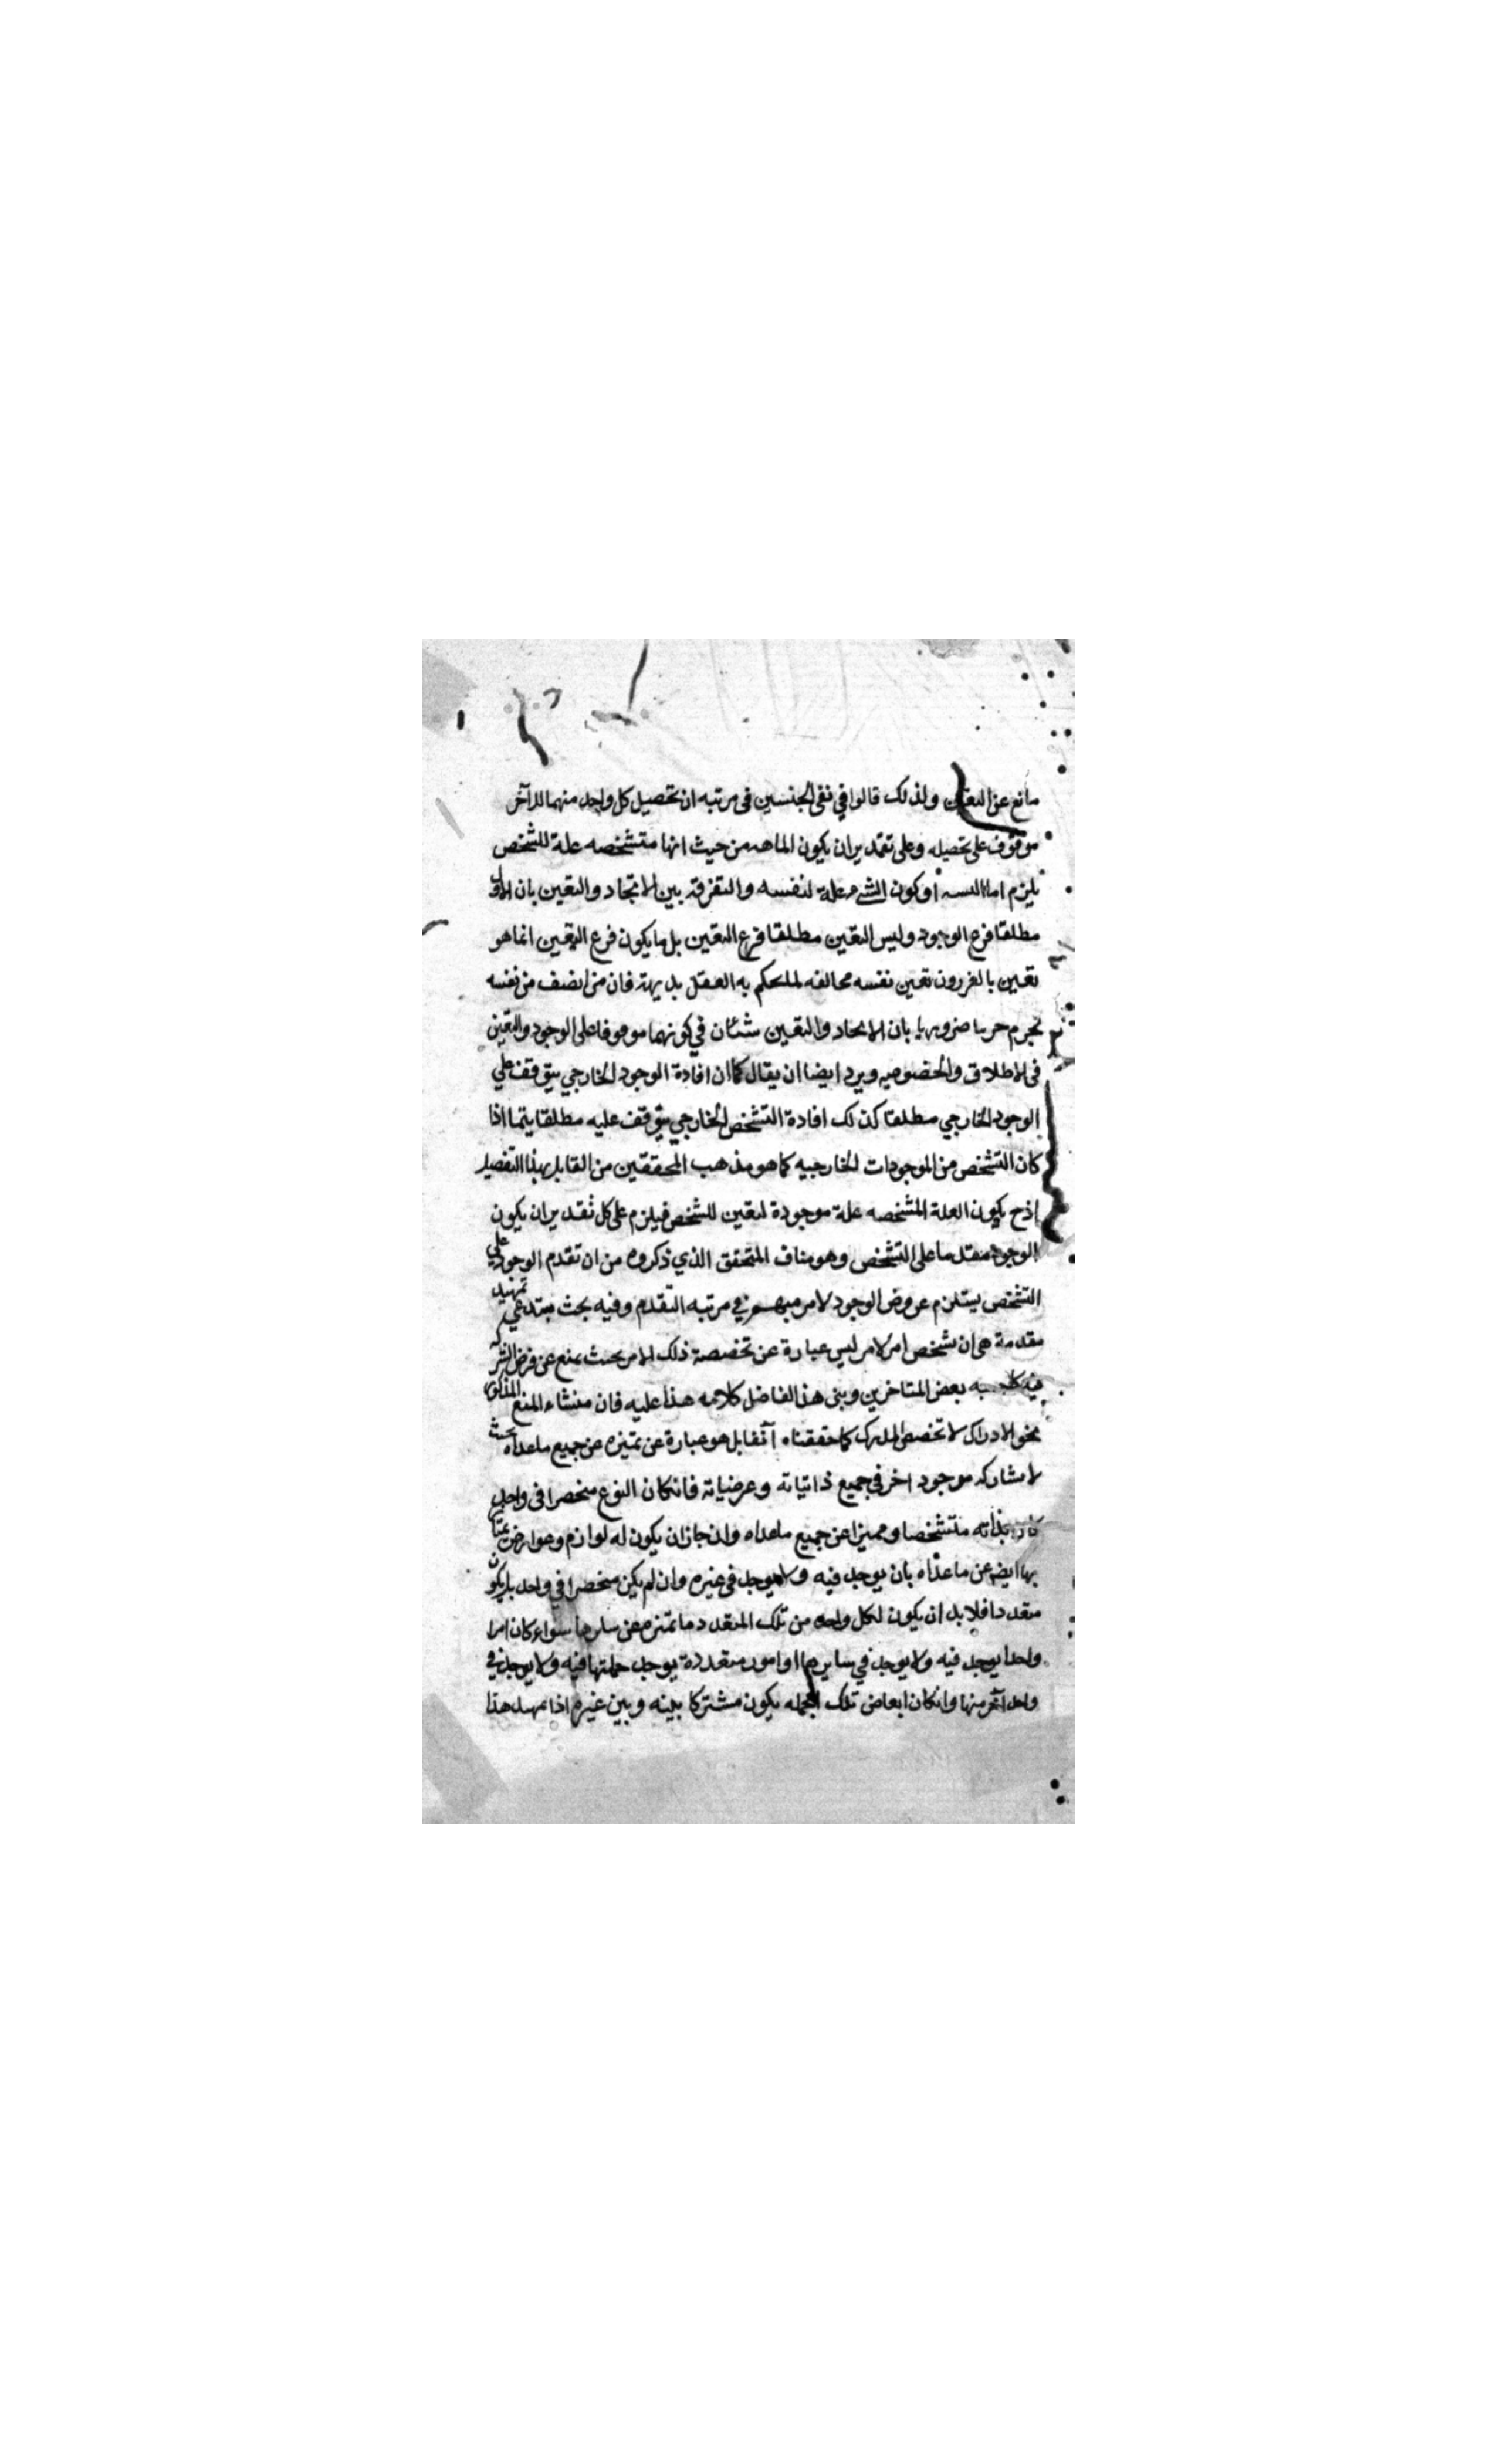 مانع عن التعين ولذلك قالوا في نفى الجنسين فى مرتبه ان تحصيل كل واحد منهما للآخر
موقوف على تحصيله وعلى تقدير ان يكون الماهيه من حيث انها متشخصه علة للشخص
يلزم اما او كون الشيء علة لنفسه والتفرقة بين الاتحاد والتعين بان الاول
مطلقا فرع الوجود وليس التعين مطلقا فرع التعين بل ما يكون فرع التعين انما هو
تعين نفسه مخالفه لما يحكم به العقل بديهة فان من انصف من نفسه
بان الاتحاد والتعين شيئان في كونهما موقوفا على الوجود والتعين
فى الاطلاق والخصوصيه ويرد ايضا ان يقال كما ان افادة الوجود الخارجي يتوقف على
الوجود الخارجي مطلقا كذلك افادة التشخص الخارجي يتوقف عليه مطلقا اذا
كان التشخص من الموجودات الخارجيه كما هو مذهب المحققين من القايل بهذا التفصيل
اذ ح يكون العلة المشخصه علة موجودة للشخص فيلزم على كل تقدير ان يكون
الوجود مقدما على التشخص وهو مناف المتحقق الذي ذكروه من ان تقدم الوجود على
التشخص يستلزم عروض الوجود لامر مبهم في مرتبه التقدم وفيه بحث يبتدعي تمهيد
مقدمة هى ان تشخص امر لامر ليس عبارة عن تخصصه ذلك الامر بحيث يمنع عن فرض الشركه
فيه به بعض المتاخرين وبنى هذا الفاضل كلامه هذا عليه فان منشاء المنع المذكور
نحو الادراك لا تخصص المدرك كما حققناه آنفا بل هو عبارة عن تميزه عن جميع ما عداه بحيث
لا يشاركه موجود اخر فى جميع ذاتياته وعرضياته فانكان النوع منحصرا فى واحد
كان بذاته متشخصا ومميزا عن جميع ماعداه وان جاز ان يكون له لوازم وعوارض
بها ايضم عن ماعداه بان يوجد فيه ولا يوجد فى غيره وان لم يكن منحصرا في واحد بل يكون
متعددا فلا بد ان يكون لكل واحد من تلك المتعدد ما تميزه عن سايرها سواء كان امرا
واحدا يوجد فيه ولا يوجد في سايرها او امور متعددة يوجد جملتها فيه ولا يوجد في
واحد آخر منها وانكان ابعاض تلك الجمله يكون مشتركا بينه وبين غيره اذا تمهد هذا